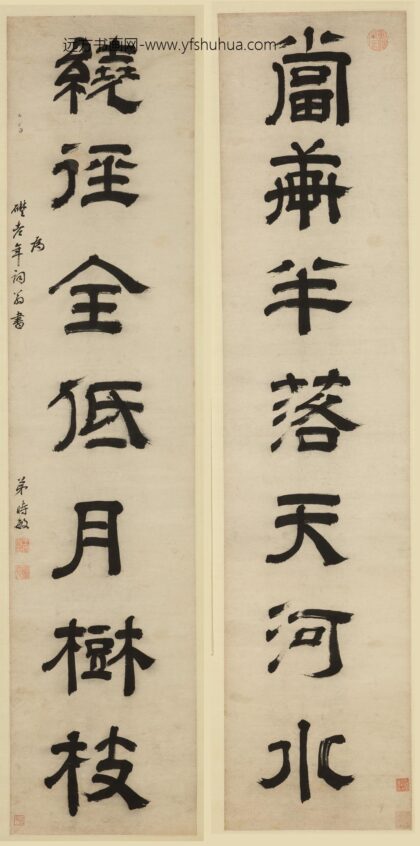 當軒半落天河水
繞徑全低月樹枝
為
礎老年詞翁書
弟時敏
远方书画网-www.yfshuhua.com